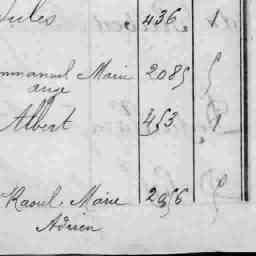 Jules 436 1
Emmanuel Marie 2085
ange
Albert 453 1
Raoul Marie 2956
Adrien